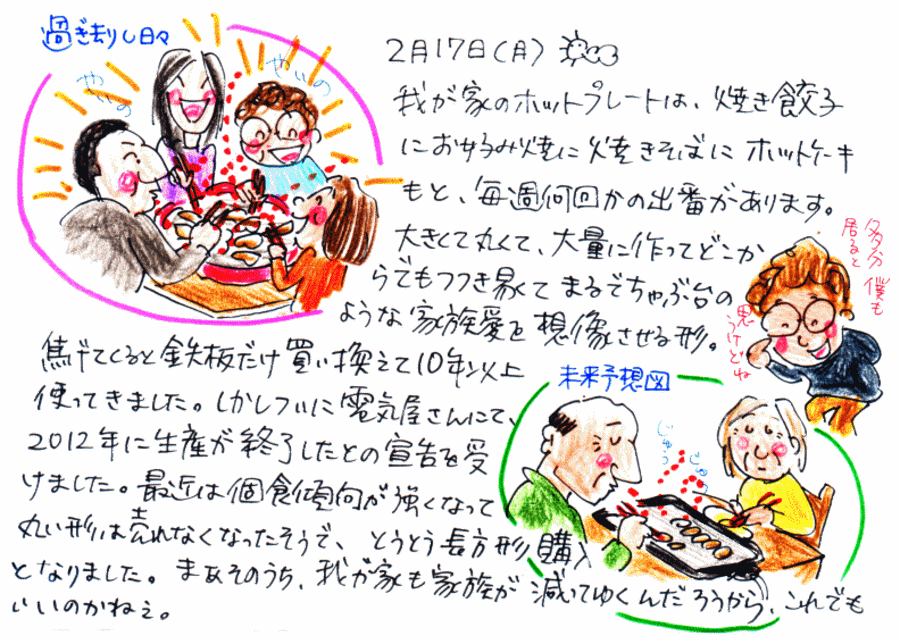 過ぎ去りし日々
やいの
やいの
2月17日(月)
我が家のホットプレートは、焼き餃子
にお好み焼に焼きそばにホットケーキ
もと、毎週何回かの出番があります。
大きくて丸くて、大量に作ってどこか
らでもつつき易くてまるでちゃぶ台の
ような家族愛を想像させる形。
多分僕も
居ると
思うけどね
焦げてくると鉄板だけ買い換えて10年以上
使ってきました。しかしついに電気屋さんにて、
2012年に生産が終了したとの宣告を受
けました。最近は個食傾向が強くなって
丸い形は売れなくなったそうで、とうとう長方形購入
となりました。まあそのうち、我が家も家族が減ってゆくんだろうから、これでも
いいのかねぇ。
未来予想図
じゅう
じゅう